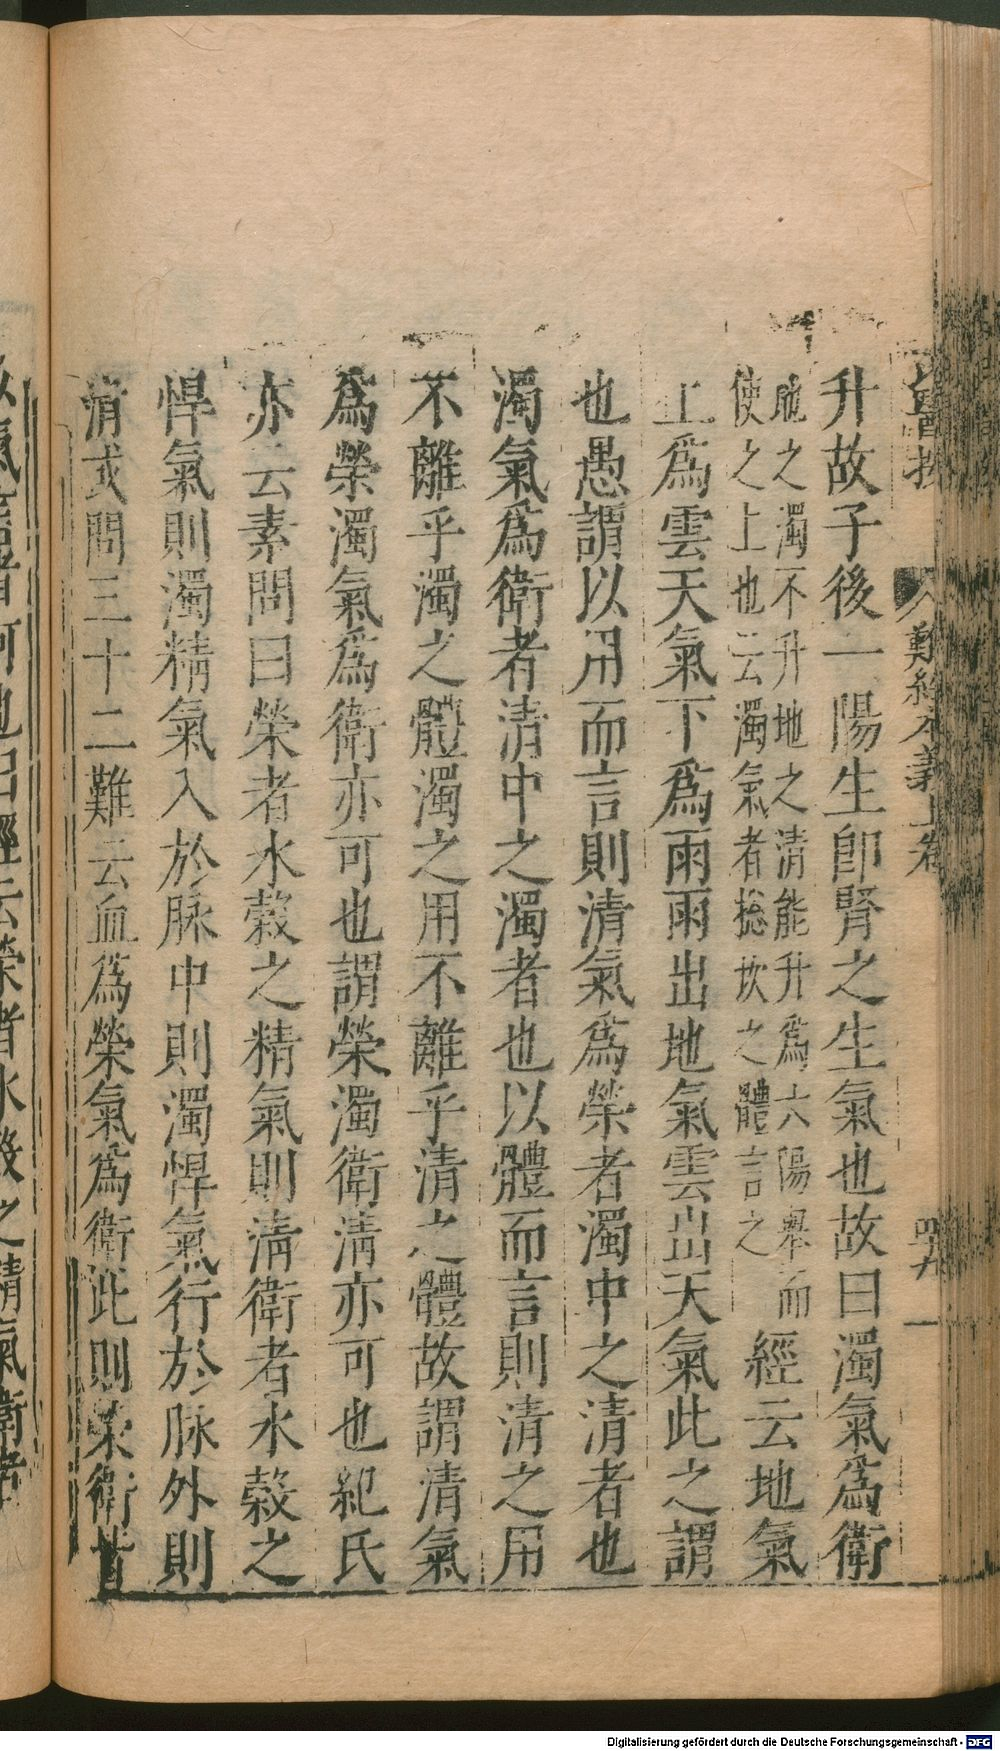 難經本義上卷
四十九
升故子後一陽生卽腎之生氣也故曰濁氣爲衛
地之濁不升地之清能升爲六陽舉而
使之上也云濁氣者揔坎之體言之
經云地氣
上爲雲天氣下爲雨雨出地氣雲出天氣此之謂
也愚謂以用而言則清氣爲榮者濁中之清者也
濁氣爲衛者清中之濁者也以體而言則清之用
不離乎濁之體濁之用不離乎清之體故謂清氣
爲榮濁氣爲衛亦可也謂榮濁衛清亦可也紀氏
亦云素問曰榮者水榖之精氣則清衛者水榖之
悍氣則濁精氣入於脉中則濁悍氣行於脉外則
清或問三十二難云血爲榮氣爲衛此則榮衛皆
氣者何也曰經云榮者水榖之精氣衛者
Digitalisierung gefördert durch die Deutsche Forschungsgemeinschaft - DFG